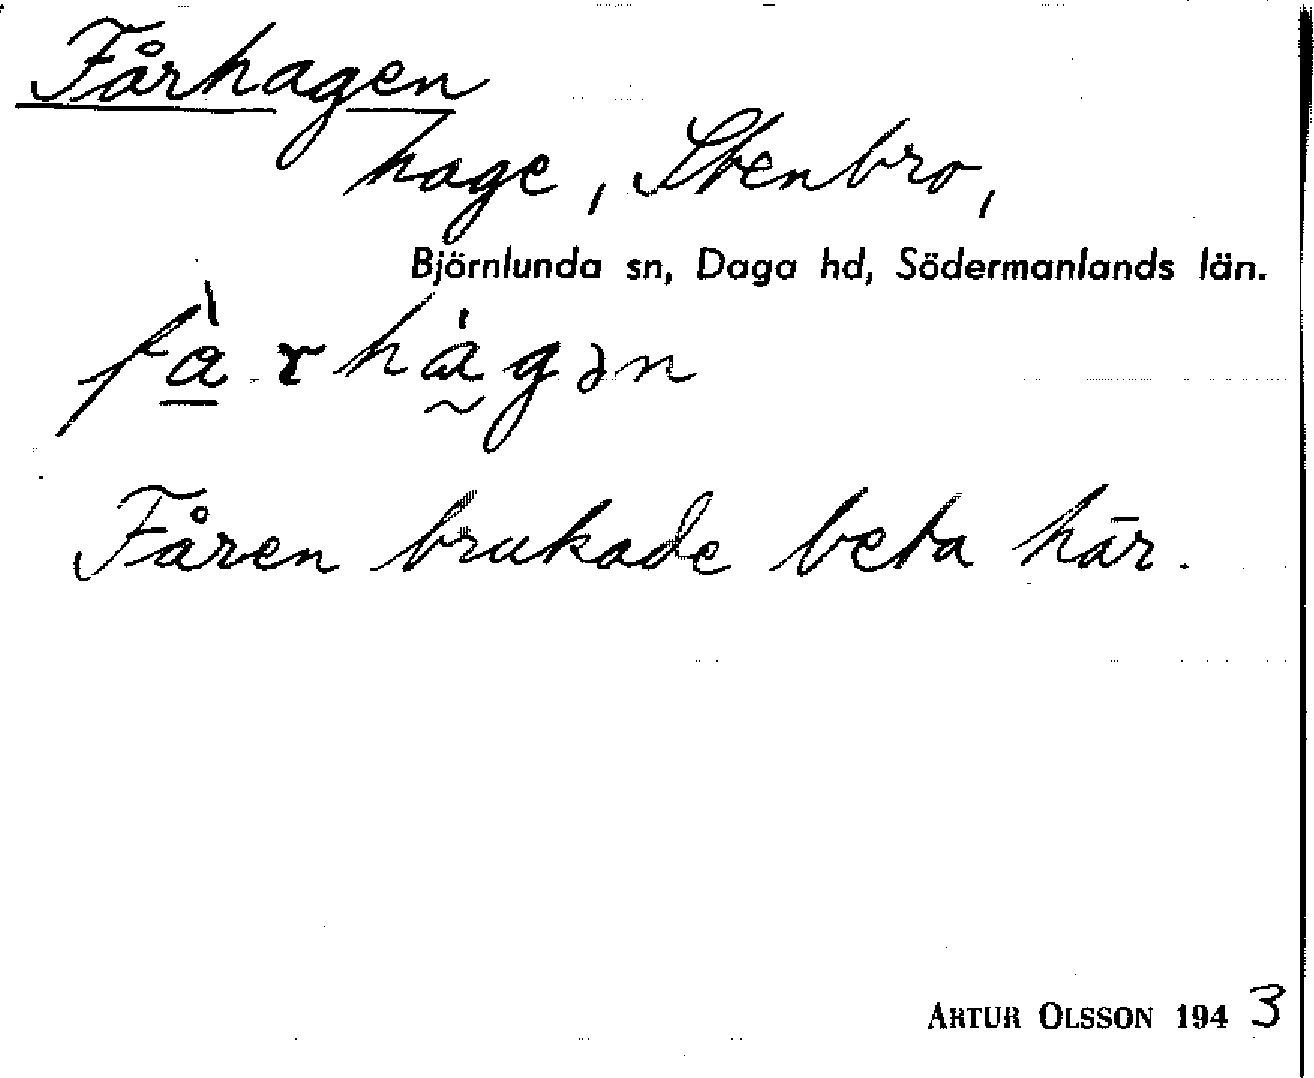 Fårhagen
hage, Stenbro,
Björnlunda sn, Daga hd, Södermanlands län.
fà̱rhá̰gən
Fåren brukade beta här.
ARTUR OLSSON 1943